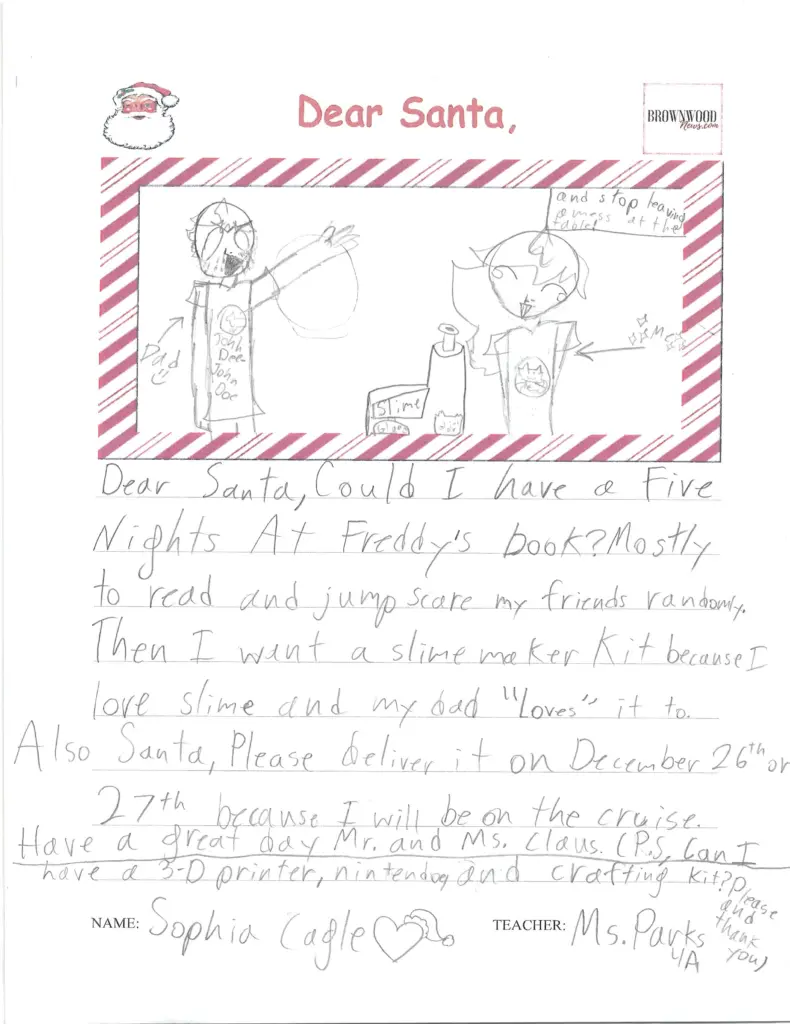 Dear Santa,
BROWNWOOD
News.com
and stop leaving
a mess at the
table!
Dad
John
Doe
John
Doe
Slime
Glue
Dear Santa, Could I have a Five
Nights At Freddy's book?Mostly
to read and jump scare my friends randomly.
Then I want a slime maker Kit because I
love slime and my dad "Loves" it to.
Also Santa, Please deliver it on December 26th or
27th because I will be on the cruise.
Have a great day Mr. and Ms. Claus. (P.S, Can I
have a 3-D printer, nintendog and crafting kit?Please
and
thank
you)
NAME: Sophia Cagle TEACHER: Ms. Parks
4A